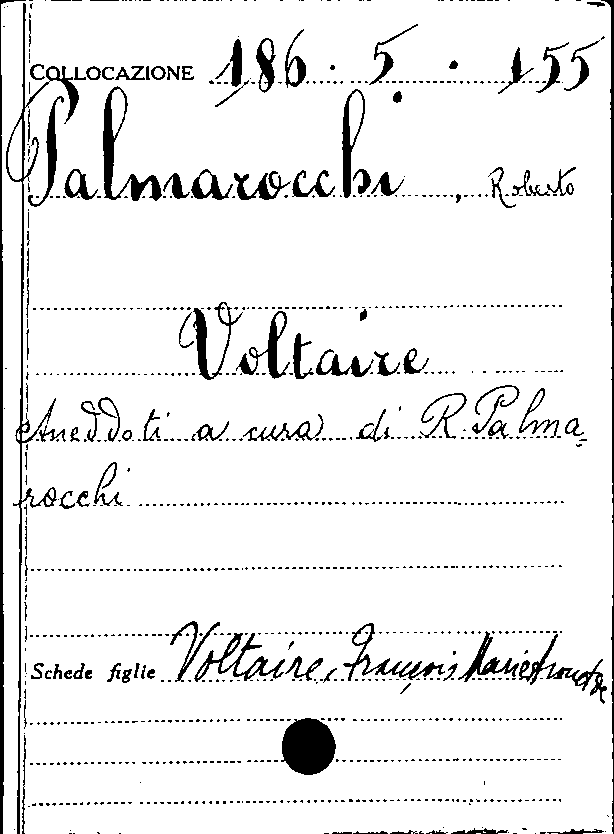 COLLOCAZIONE 186 · 5 · 155
Palmarocchi, Roberto
Voltaire
Aneddoti a cura di R. Palma=
rocchi
Schede figlie Voltaire, François Marie Arouet de